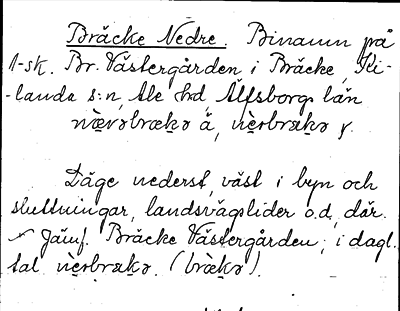 Bräcke Nedre. Binamn på
1-sk. Br. Västergården i Bräcke, Ki-
-landa s:n, Ale hd, Älfsborgs län
nèvrəbrækə å, nèrbrækə y.
Läge nederst, väst i byn och
sluttningar, landsväglider o.d. där.
Jämf. Bräcke Västergården; i dagl.
tal nèrbrækə. (brækə).